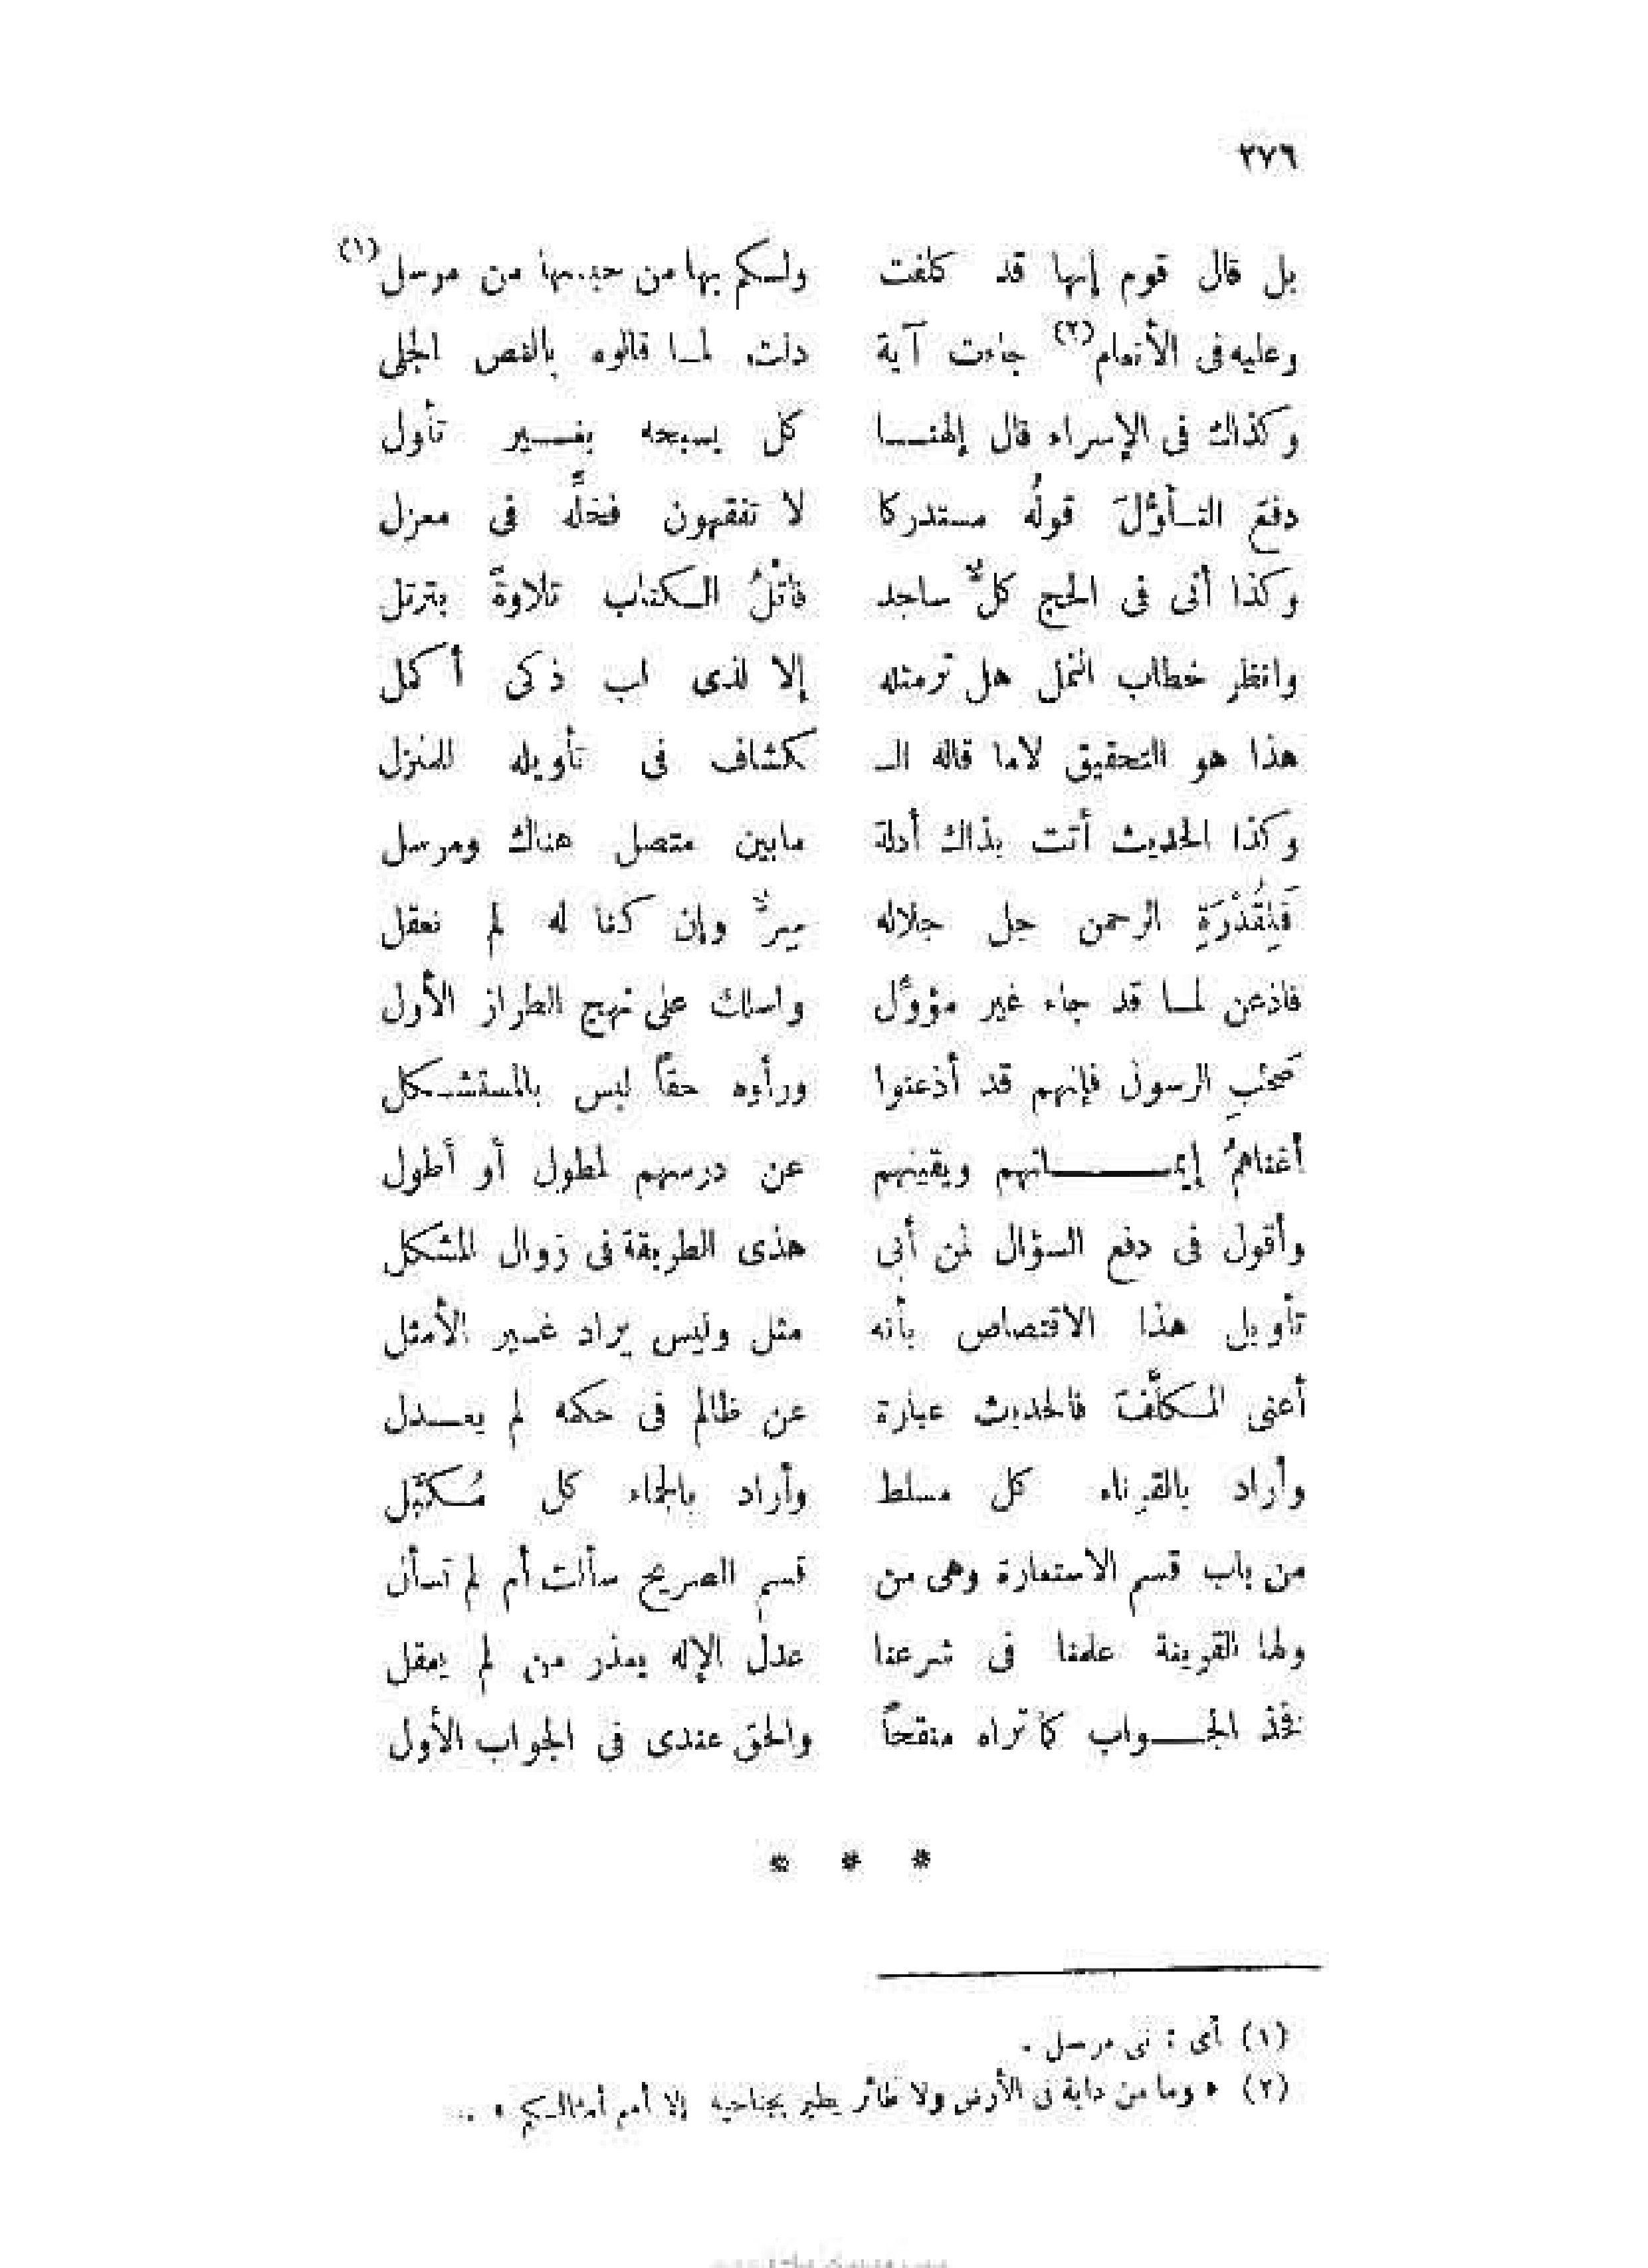 ٢٧٦
بل قال قوم إنها قد كلفت ولكم بها من جنسها من مرسل (١)
وعليه فى الأنعام (٢) جاءت آية دلت لما قالوه بالنص الجلى
وكذاك فى الإسراء قال إلهنا كل يسبحه بغير تأول
دفعَ التأوُّلَ قولُه مستدركا لا تفقهون فخلِّه فى معزل
وكذا أتى فى الحج كلٌّ ساجد فاتْلُ الكتاب تلاوةً بترتل
وانظر خطاب النمل هل ترمثله إلا لذى لب ذكى أكمل
هذا هو التحقيق لاما قاله الـ كشاف فى تأويله للمنزل
وكذا الحديث أتت بذاك أدلة مابين متصل هناك ومرسل
فَلِقُدْرَةِ الرحمن جل جلاله سِرٌّ وإن كنا له لم نعقل
فاذعن لما قد جاء غير مؤوَّل واسلك على نهج الطراز الأول
صَحْبِ الرسول فإنهم قد أذعنوا ورأوه حقاً ليس بالمستشكل
أغناهمُ إيمانهم ويقينهم عن درسهم لمطول أو أطول
وأقول فى دفع السؤال لمن أبى هذى الطريقة فى زوال المشكل
تأويل هذا الاقتصاص بأنه مثل وليس يراد غير الأمثل
أعنى المكلَّفَ فالحديث عبارة عن ظالم فى حكمه لم يعدل
وأراد بالقرناء كل مسلط وأراد بالجماء كل مُكَبَّل
من باب قسم الاستعارة وهى من قسم الصريح سألت أم لم تسأل
ولها القرينة علمنا فى شرعنا عدل الإله بعذر من لم يعقل
فخذ الجواب كما تراه منقحاً والحق عندى فى الجواب الأول
* * *
(١) أى : نبى مرسل .
(٢) « وما من دابة فى الأرض ولا طائر يطير بجناحيه إلا أمم أمثالكم » ..